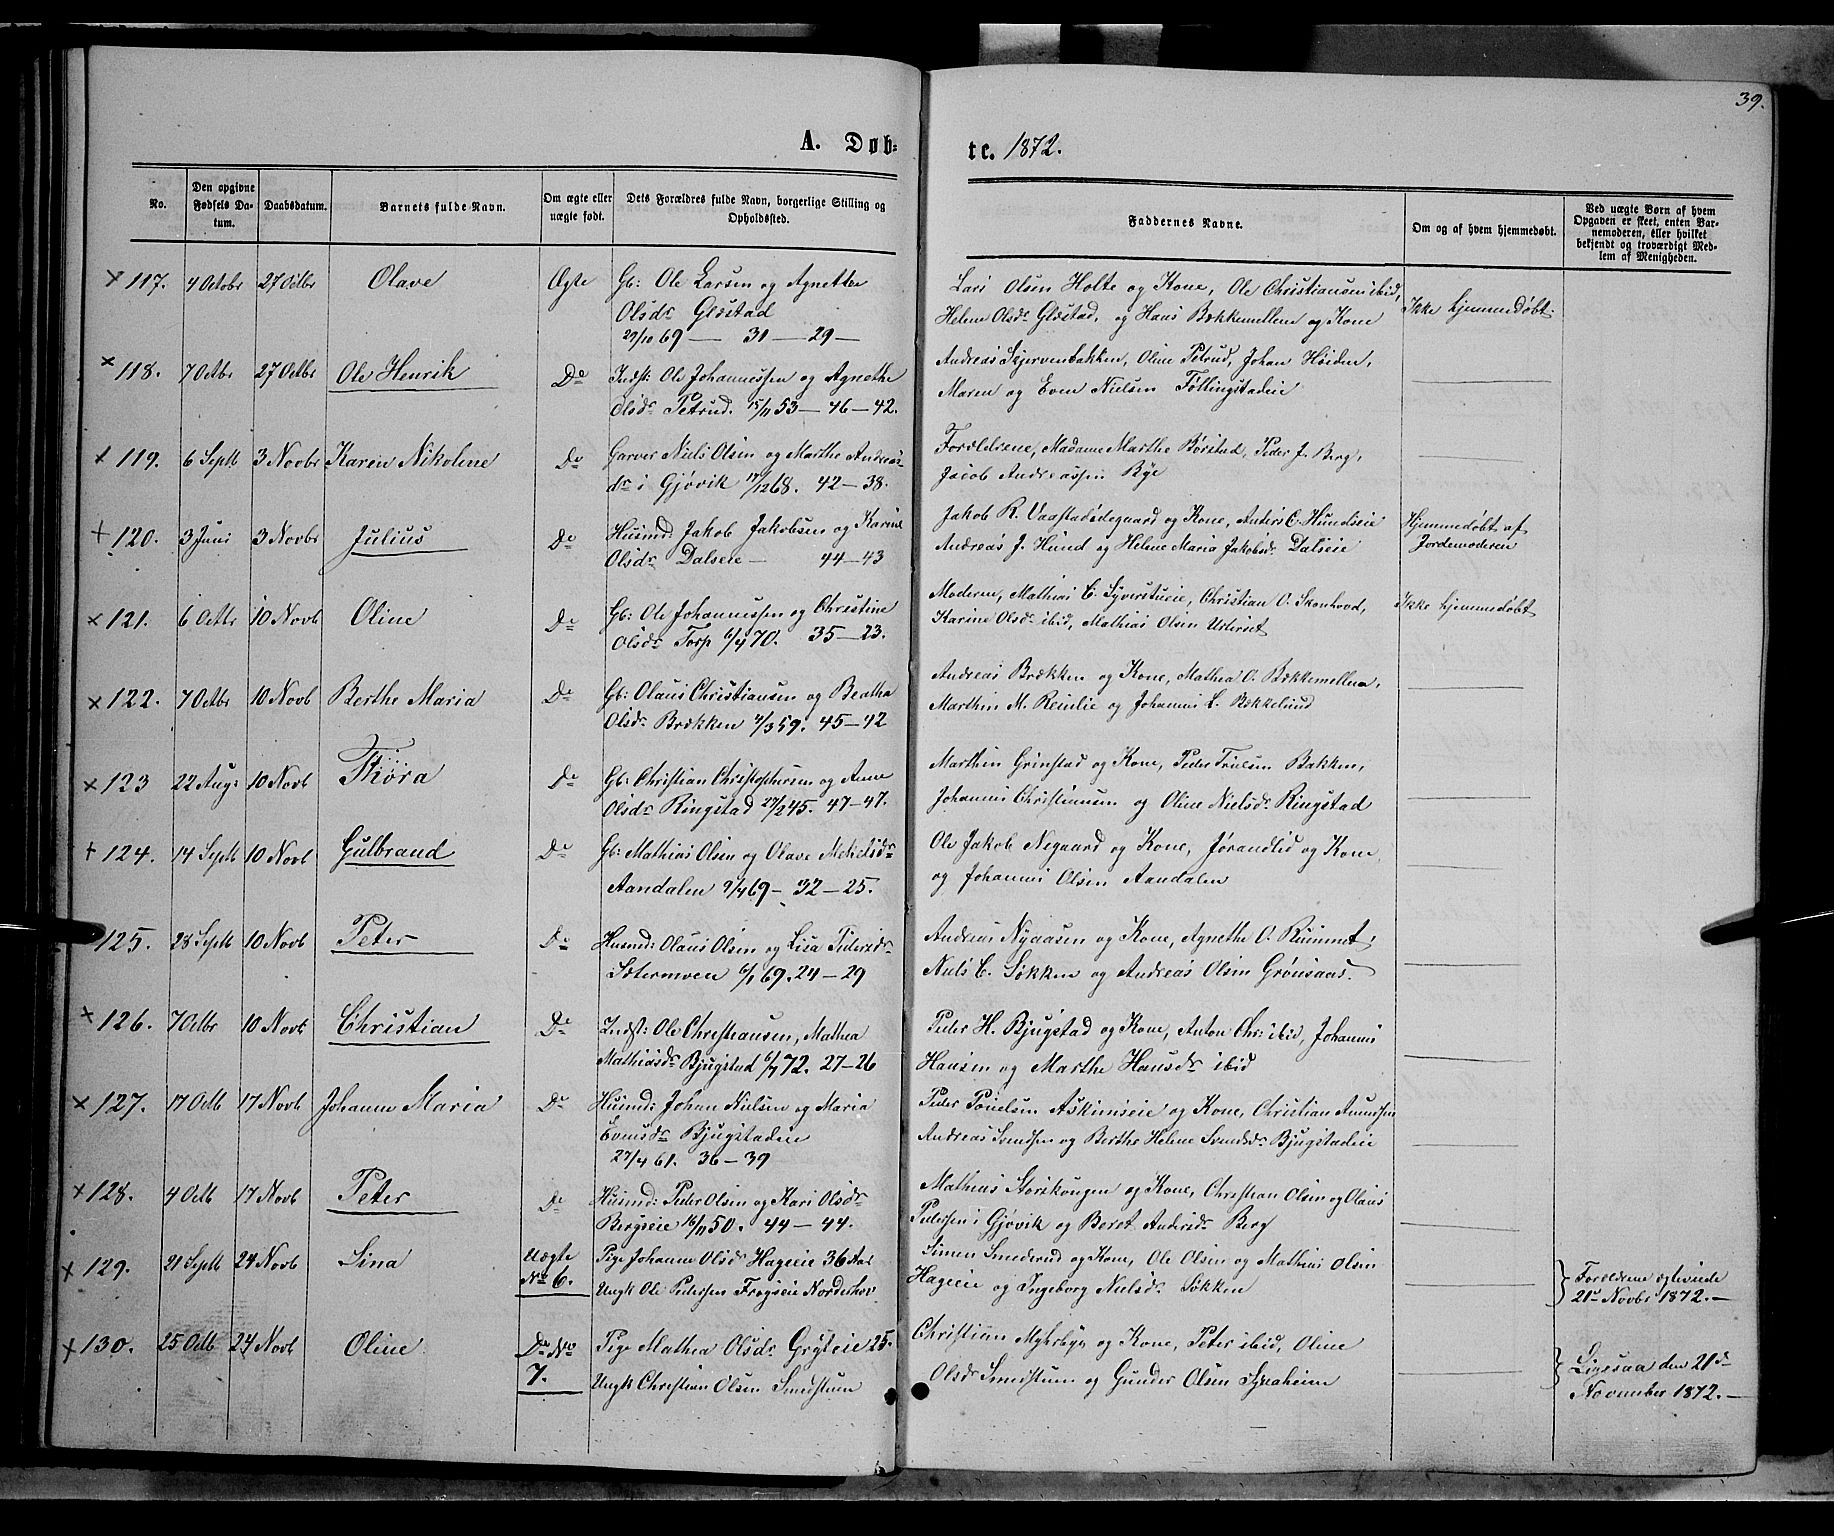 39.
A. Døb-
te. 1872.
No.
Den opgivne Fødsels Da-tum.
Daabsdatum.
Barnets fulde Navn.
Om ægte eller uægte født.
Dets Forældres fulde Navn, borgerlige Stilling og Opholdssted.
Faddernes Navne.
Om og af hvem hjemmedøbt.
Ved uægte Børn af hvem Opgaven er skeet, enten Bar-nemoderen, eller hvilket bekjendt og troværdigt Med-lem af Menigheden.
× 117. 4 Octobr 27 Octbr Olave Ægte Gb: Ole Larsen og Agnethe
Olsdr Glæstad
29/10 69 — 31 — 29 —
Lars Olsen Holte og Kone, Ole Christiansen ibid,
Helene Olsdr Glæstad, og Hans Bækkemellem og Kone
Ikke hjemmedøbt.
× 118. 7 Octbr 27 Octbr Ole Henrik Do Indst: Ole Johannessen og Agnethe
Olsdr Petrud. 15/11 53 — 46 — 42.
Andreas Skjervenbakken, Oline Petrud, Johan Høiden,
Maren og Even Nielsen Føllingstadeie
× 119. 6 Septb 3 Novbr Karen Nikoline Do Garver Niels Olsen og Marthe Andreas-
dr i Gjøvik 17/12 68. 42 — 38.
Forældrene, Madame Marthe Børstad, Peder J. Berg,
Jacob Andreassen Bye
+ 120. 3 Juni 3 Novbr Julius Do Husmd: Jakob Jakobsen og Karine
Olsdr Dalseie — 44 — 43
Jakob R. Vaastadødegaard og Kone, Anders C. Hundseie
Andreas J. Hund og Helene Maria Jakobsdr Dalseie
Hjemmedøbt af
Jordemoderen
× 121. 6 Octbr 10 Novb Oline Do Gb: Ole Johannessen og Christine
Olsdr Torp 6/4 70. 35 — 23.
Moderen, Mathias C. Syverstueie, Christian O. Skonhovd,
Karine Olsdr ibid, Mathias Olsen
Ikke hjemmedøbt
× 122. 7 Octbr 10 Novb Berthe Maria Do Gb: Olaus Christiansen og Beatha
Olsdr Brækken 4/3 59. 45 — 42
Andreas Brækken og Kone, Mathea O. Bækkemellem,
Marthin M. Reinlie og Johannes L. Bækkelund
× 123 22 Aug: 10 Novb Thora Do Gb: Christian Christophersen og Anne
Olsdr Ringstad 27/2 45. 47 — 47.
Marthin Grinstad og Kone, Peder Truelsen Bakken,
Johannes Christiansen og Oline Nielsdr Ringstad
+ 124. 14 Septb 10 Novb Gulbrand Do Gb: Mathias Olsen og Olave Mekelsdr
Aandalen 9/4 69 — 32 — 25.
Ole Jakob Negaard og Kone, Jørandlid og Kone,
og Johannes Olsen Aandalen
125. 28 Septb 10 Novb Peter Do Husmd: Olaus Olsen og Lisa Pedersdr
Sætermoen 6/1 69. 24 — 29
Andreas Nyaasen og Kone, Agnethe O. Rummet,
Niels C. Løkken og Andreas Olsen Grønsaas.
× 126. 7 Octbr 10 Novb Christian Do Indst: Ole Christiansen, Mathea
Mathiasdr Bjugstad 6/7 72. 27 — 26
Peder H. Bjugstad og Kone, Anton Chr: ibid, Johannes
Hansen og Marthe Hansdr ibid
× 127. 17 Octb 17 Novb Johanne Maria Do Husmd: Johan Nielsen og Maria
Evensdr Bjugstadeie
27/4 61. 36 — 39
Peder Poulsen Askimseie og Kone, Christian Amundsen
Andreas Svendsen og Berthe Helene Svendsdr Bjugstadeie
× 128. 4 Octb 17 Novb Peter Do Husmd: Peder Olsen og Kari Olsdr
Bergseie 16/11 50. 44 — 44.
Mathias Storskougen og Kone, Christian Olsen og Olaus
Pedersen i Gjøvik og Beret Andersdr Berg
× 129. 21 Septb 24 Novb Lina Uægte Pige Johanne Olsdr Hageeie 36 Aar
No 6. Ungk Ole Pedersen Frogseie Norderhov
Simen Smederud og Kone, Ole Olsen og Mathias Olsen
Hageeie og Ingeborg Nielsdr Løkken
Forældrene opleviede
21de Novbr 1872. —
× 130. 25 Octb 24 Novb Oline Do No Pige Mathea Olsdr Gryteeie 25.
7. Ungk Christian Olsen Smedstuen
Christian Myhrbye og Kone, Peter ibid, Oline
Olsdr Smedstuen og Gunder Olsen Synaheim
Ligesaa den 21de
November 1872. —